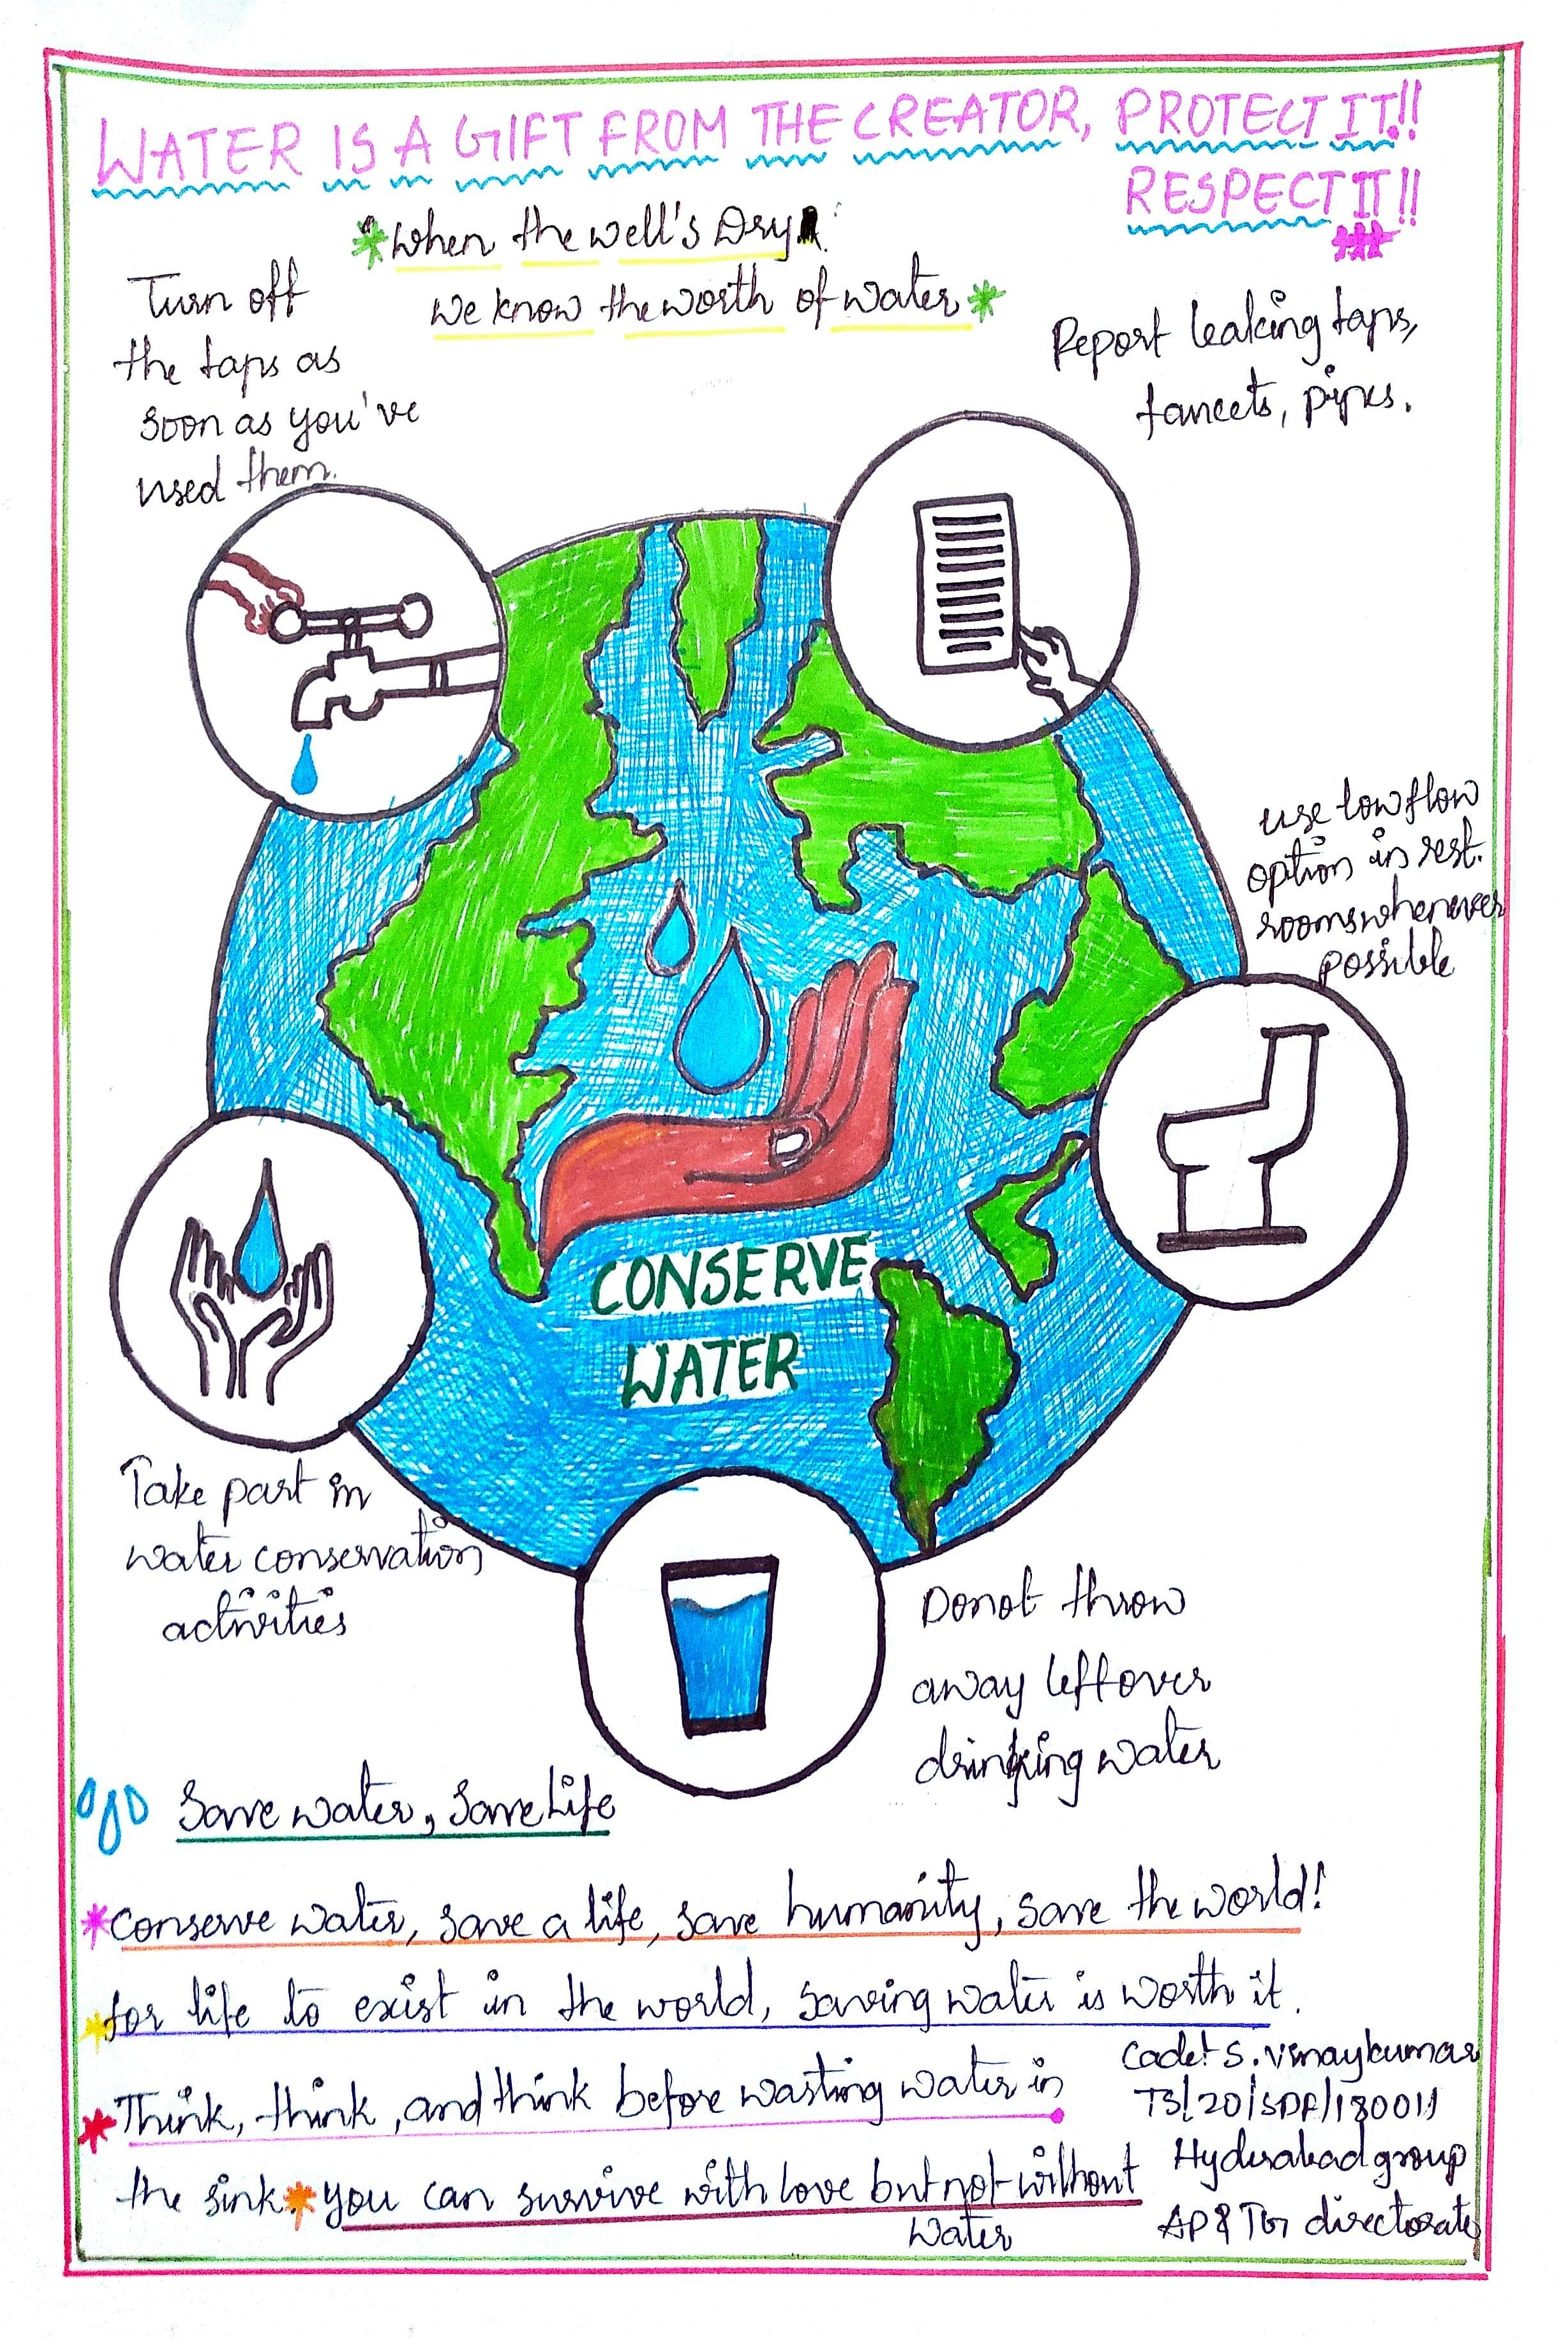 WATER IS A GIFT FROM THE CREATOR, PROTECT IT!!
RESPECT IT!!
When the well's Dry
we know the worth of water
Turn off
the taps as
soon as you've
used them.
Report leaking taps,
faucets, pipes.
use low flow
option in rest.
rooms whenever
possible
CONSERVE
WATER
Take part in
water conservation
activities
Donot throw
away leftover
drinking water
Save water, Save Life
Conserve water, save a life, save humanity, save the world!
for life to exist in the world, saving water is worth it.
Think, think, and think before wasting water in
the sink you can survive with love but not without
water
Cadet S. Vinaykumar
TS/20/SDA/180011
Hyderabad group
AP & TG directorate